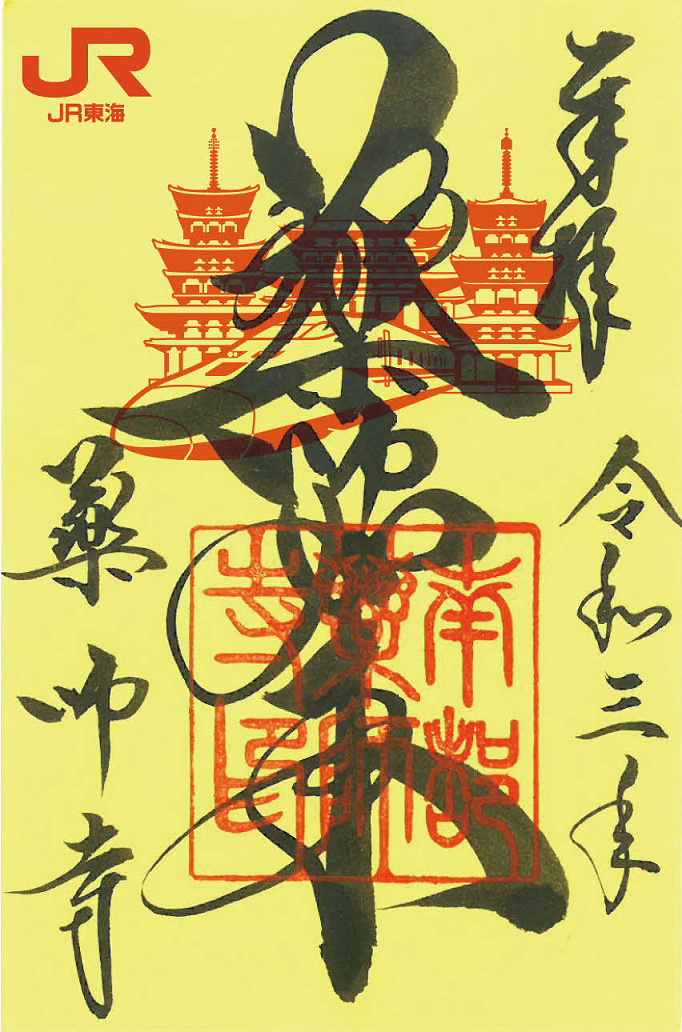 JR
JR東海
奉拝
令和三年
薬師如来
南都
薬師
寺印
薬師寺